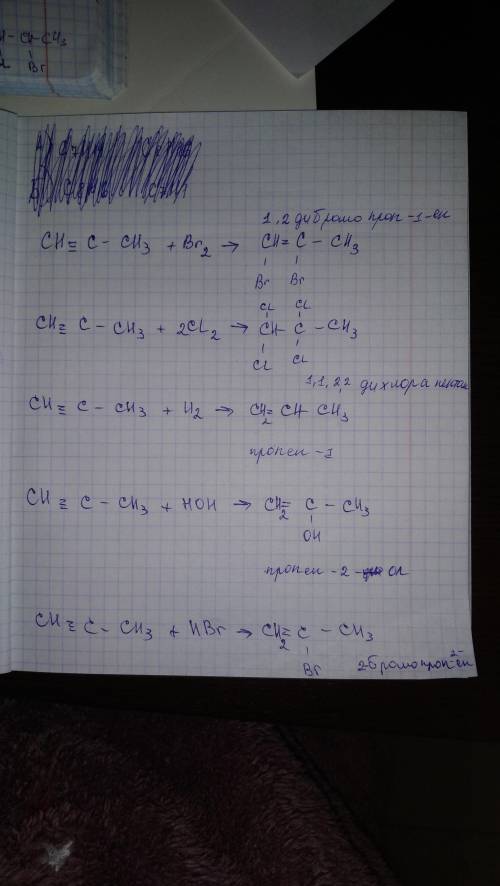 CH - CH - CH3
Br
1,2 дибромо проп -1-ен
CH ≡ C - CH3 + Br2 → CH = C - CH3
Br Br
Cl Cl
CH ≡ C - CH3 + 2Cl2 → CH - C - CH3
Cl Cl
1,1,2,2 дихлора
CH ≡ C - CH3 + H2 → CH2 = CH CH3
пропен -1
CH ≡ C - CH3 + HOH → CH2 = C - CH3
OH
пропен -2 - ол
CH ≡ C - CH3 + HBr → CH2 = C - CH3
Br
2-бромопроп-2-ен